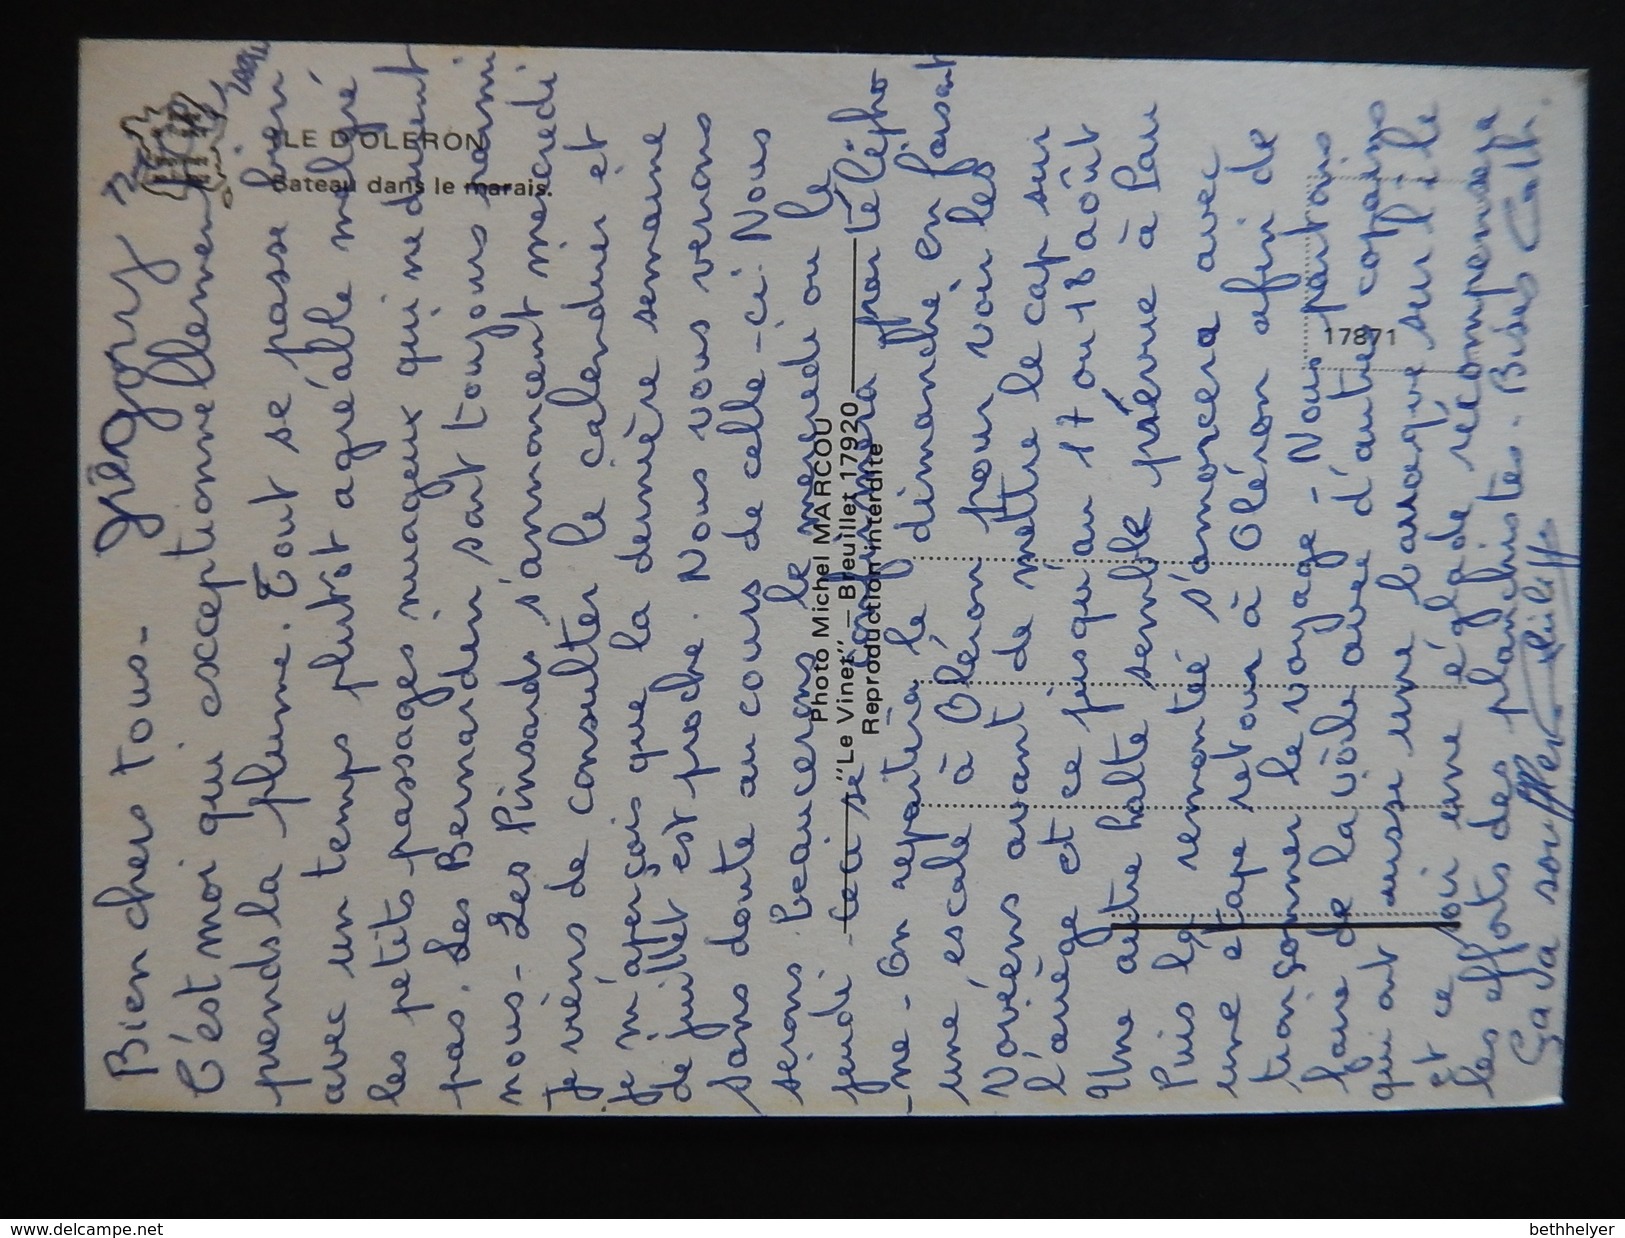 Bien chers tous - Grégory
C'est moi qui exceptionnellement
prends la plume. Tout se passe bien
avec un temps plutôt agréable malgré
les petits passages nuageux qui ne durent
pas. Les Bernardin sont toujours parmi
nous - Les Pinsard s'annoncent mercredi
Je viens de consulter le calendrier et
je m'aperçois que la dernière semaine
de juillet est proche. Nous vous verrons
sans doute au cours de celle-ci. Nous
serons beaucerons le mercredi ou le
jeudi - ceci se confirmera par télépho
-ne - On repartira le dimanche en faisant
une escale à Oléron pour voir les
Noviens avant de mettre le cap sur
l'ariège et ce jusqu'au 17 ou 18 août
Une autre halte semble prévue à Pau
Puis la remontée s'amorcera avec
une étape retour à Oléron afin de
tronçonner le voyage - Nous partrons
faire de la voile avec d'autres copains
qui ont aussi une baraque sur l'île
Et ce soir une églade récompensera
les efforts des planchistes. Bises Cath.
Ca va souffler
ILE D'OLERON
Bateau dans le marais.
Photo Michel MARCOU
"Le Vinet" — Breuillet 17920
Reproduction interdite
17871
www.delcampe.net
bethhelyer